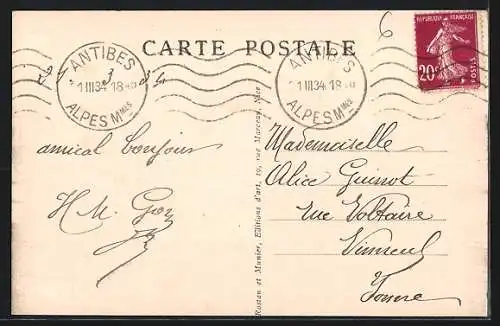 6
CARTE POSTALE
RÉPUBLIQUE FRANÇAISE
20c
POSTES
ANTIBES
1 III 34 18
ALPES Mmes
ANTIBES
1 III 34 18
ALPES Mmes
3
amical bonjour
H M.
Rostan et Munier, Editions d'art, 19, rue Marceau, Nice
Mademoiselle
Alice Guinot
rue Voltaire
Yonne